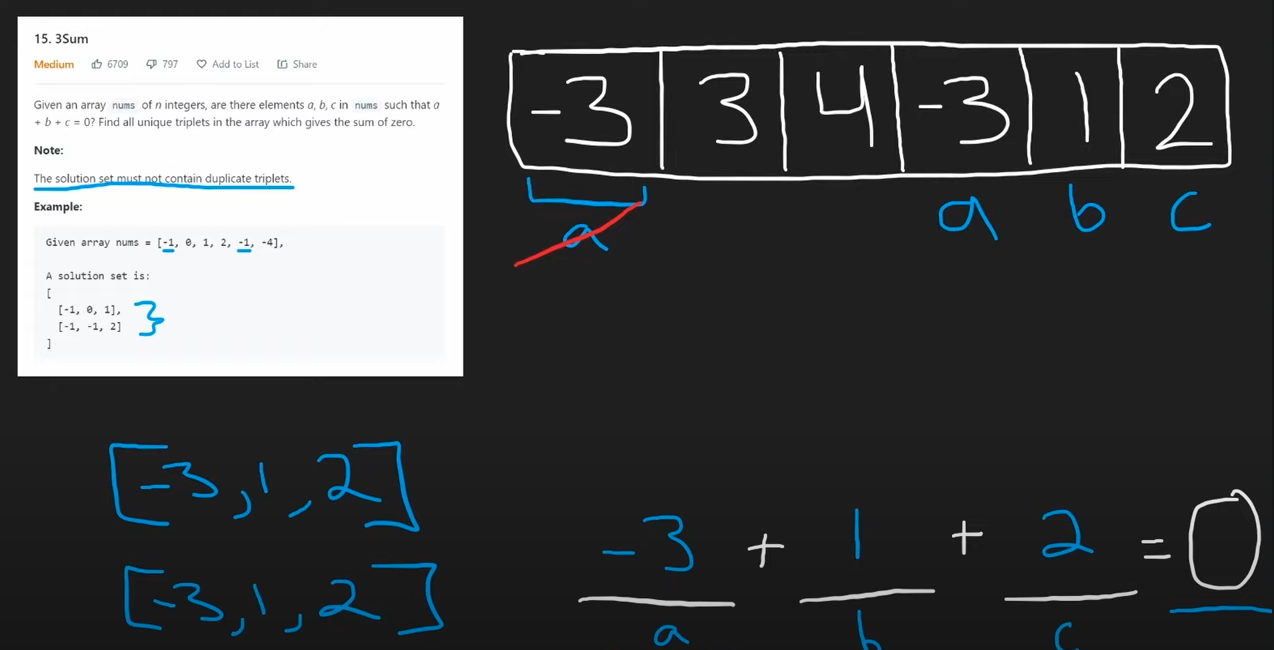 15. 3Sum
Medium 6709 797 Add to List Share
Given an array nums of n integers, are there elements a, b, c in nums such that a
+ b + c = 0? Find all unique triplets in the array which gives the sum of zero.
Note:
The solution set must not contain duplicate triplets.
Example:
Given array nums = [-1, 0, 1, 2, -1, -4],
A solution set is:
[
[-1, 0, 1],
[-1, -1, 2]
]
-3 3 4 -3 1 2
a a b c
[-3, 1, 2]
[-3, 1, 2]
-3 + 1 + 2 = 0
a b c